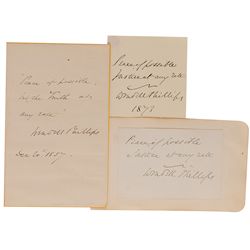 "Peace if possible,
but the Truth at
any rate"
Wendell Phillips
Dec 20th 1857
Peace if possible
Justice at any rate
Wendell Phillips
1873
Peace if possible
Justice at any rate
Wendell Phillips